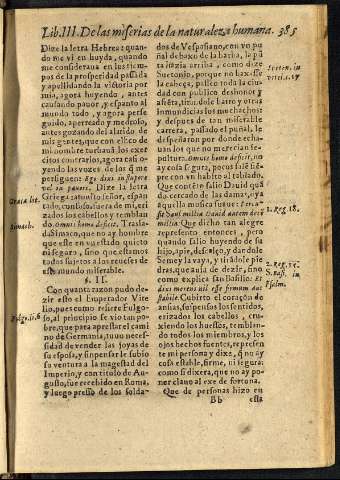 Lib. III. De las miserias de la naturaleza humana. 385
Dize la letra Hebrea: quan-
do me vi en huyda, quando
me consideraua en los tiem-
pos de la prosperidad passada
y apellidando la vistoria por
mia, agora huyendo, antes
causando pauor, y espanto al
mundo todo, y agora perse
guido, aperreado y medroso,
antes gozando del alarido de
mis gentes, que con el eco de
mi nombre turbauã los exer-
citos contrarios, agora casi o-
yendo las vozes de los q̃ me
persiguen: Ego dixi in stupore
vel in pauore. Dize la letra
Griega: atonito señor, espan-
tado, confuso, fuera de mi, eri
zados los cabellos y temblan
do. Omnis homo deficit. Trasla-
da Simaco, que no ay hombre
que este en vn estado quieto
ni seguro, sino que estamos
todos sujetos a los reueses de
este mundo miserable.
§. II.
Con quanta razon pudo de-
zir esto el Emperador Vite
lio, pues como refiere Fulgo-
so, al principio se vio tan po-
bre, que para aprestar el cami
no de Germania, tuuo neces-
sidad de vender las joyas de
su esposa, y sin pensar le subio
su ventura a la magestad del
Imperio, y con titulo de Au-
gusto, fue recebido en Roma,
y luego presso de los solda-
dos de Vespasiano, con vn pu
ñal debaxo de la barba, la pũ
ta azia arriba, como dize
Suetonio, porque no baxasse
la cabeça, passeo toda la ciu-
dad con publico deshonor y
afrẽta, tirãdole barro y otras
inmundicias los muchachos:
y despues de tan miserable
carrera, passado el puñal, le
despeñaron por donde eran
los que no merecian se-
pultura. Omnis homo deficit, no
ay cosa segura, pocos sale siẽ-
pre con vn habito al tablado.
Que contẽto salio Dauid quã
do cercado de las damas, oya
aquella mosica suaue: Percus-
sit Saul mille & Dauid decem
millia. Que dicho tan alegre
represento entonces, pero
quando salio huyendo de su
hijo, a pie, descalço, y dandole
Semey la vaya, y tirãdole pie
dras, que auia de dezir, sino
como explica san Basilio. Et
dixi mentis nil esse firmum aut
stabile. Cubierto el coraçõ de
ansias, suspensos los sentidos,
erizados los cabellos, cru-
xiendo los huesos, temblan-
do todos los miembros, y los
ojos hechos fuentes, represen
te mi persona y dixe, q̃ no ay
cosa estable, firme, ni segura:
como si dixera, que no ay po-
ner clauo al exe de fortuna.
Que de personas hizo en
Bb esta
Simach.
Fulgo. li. 6
Sueton. in
1. Reg. 18.
S. Basi. in
Psalm.